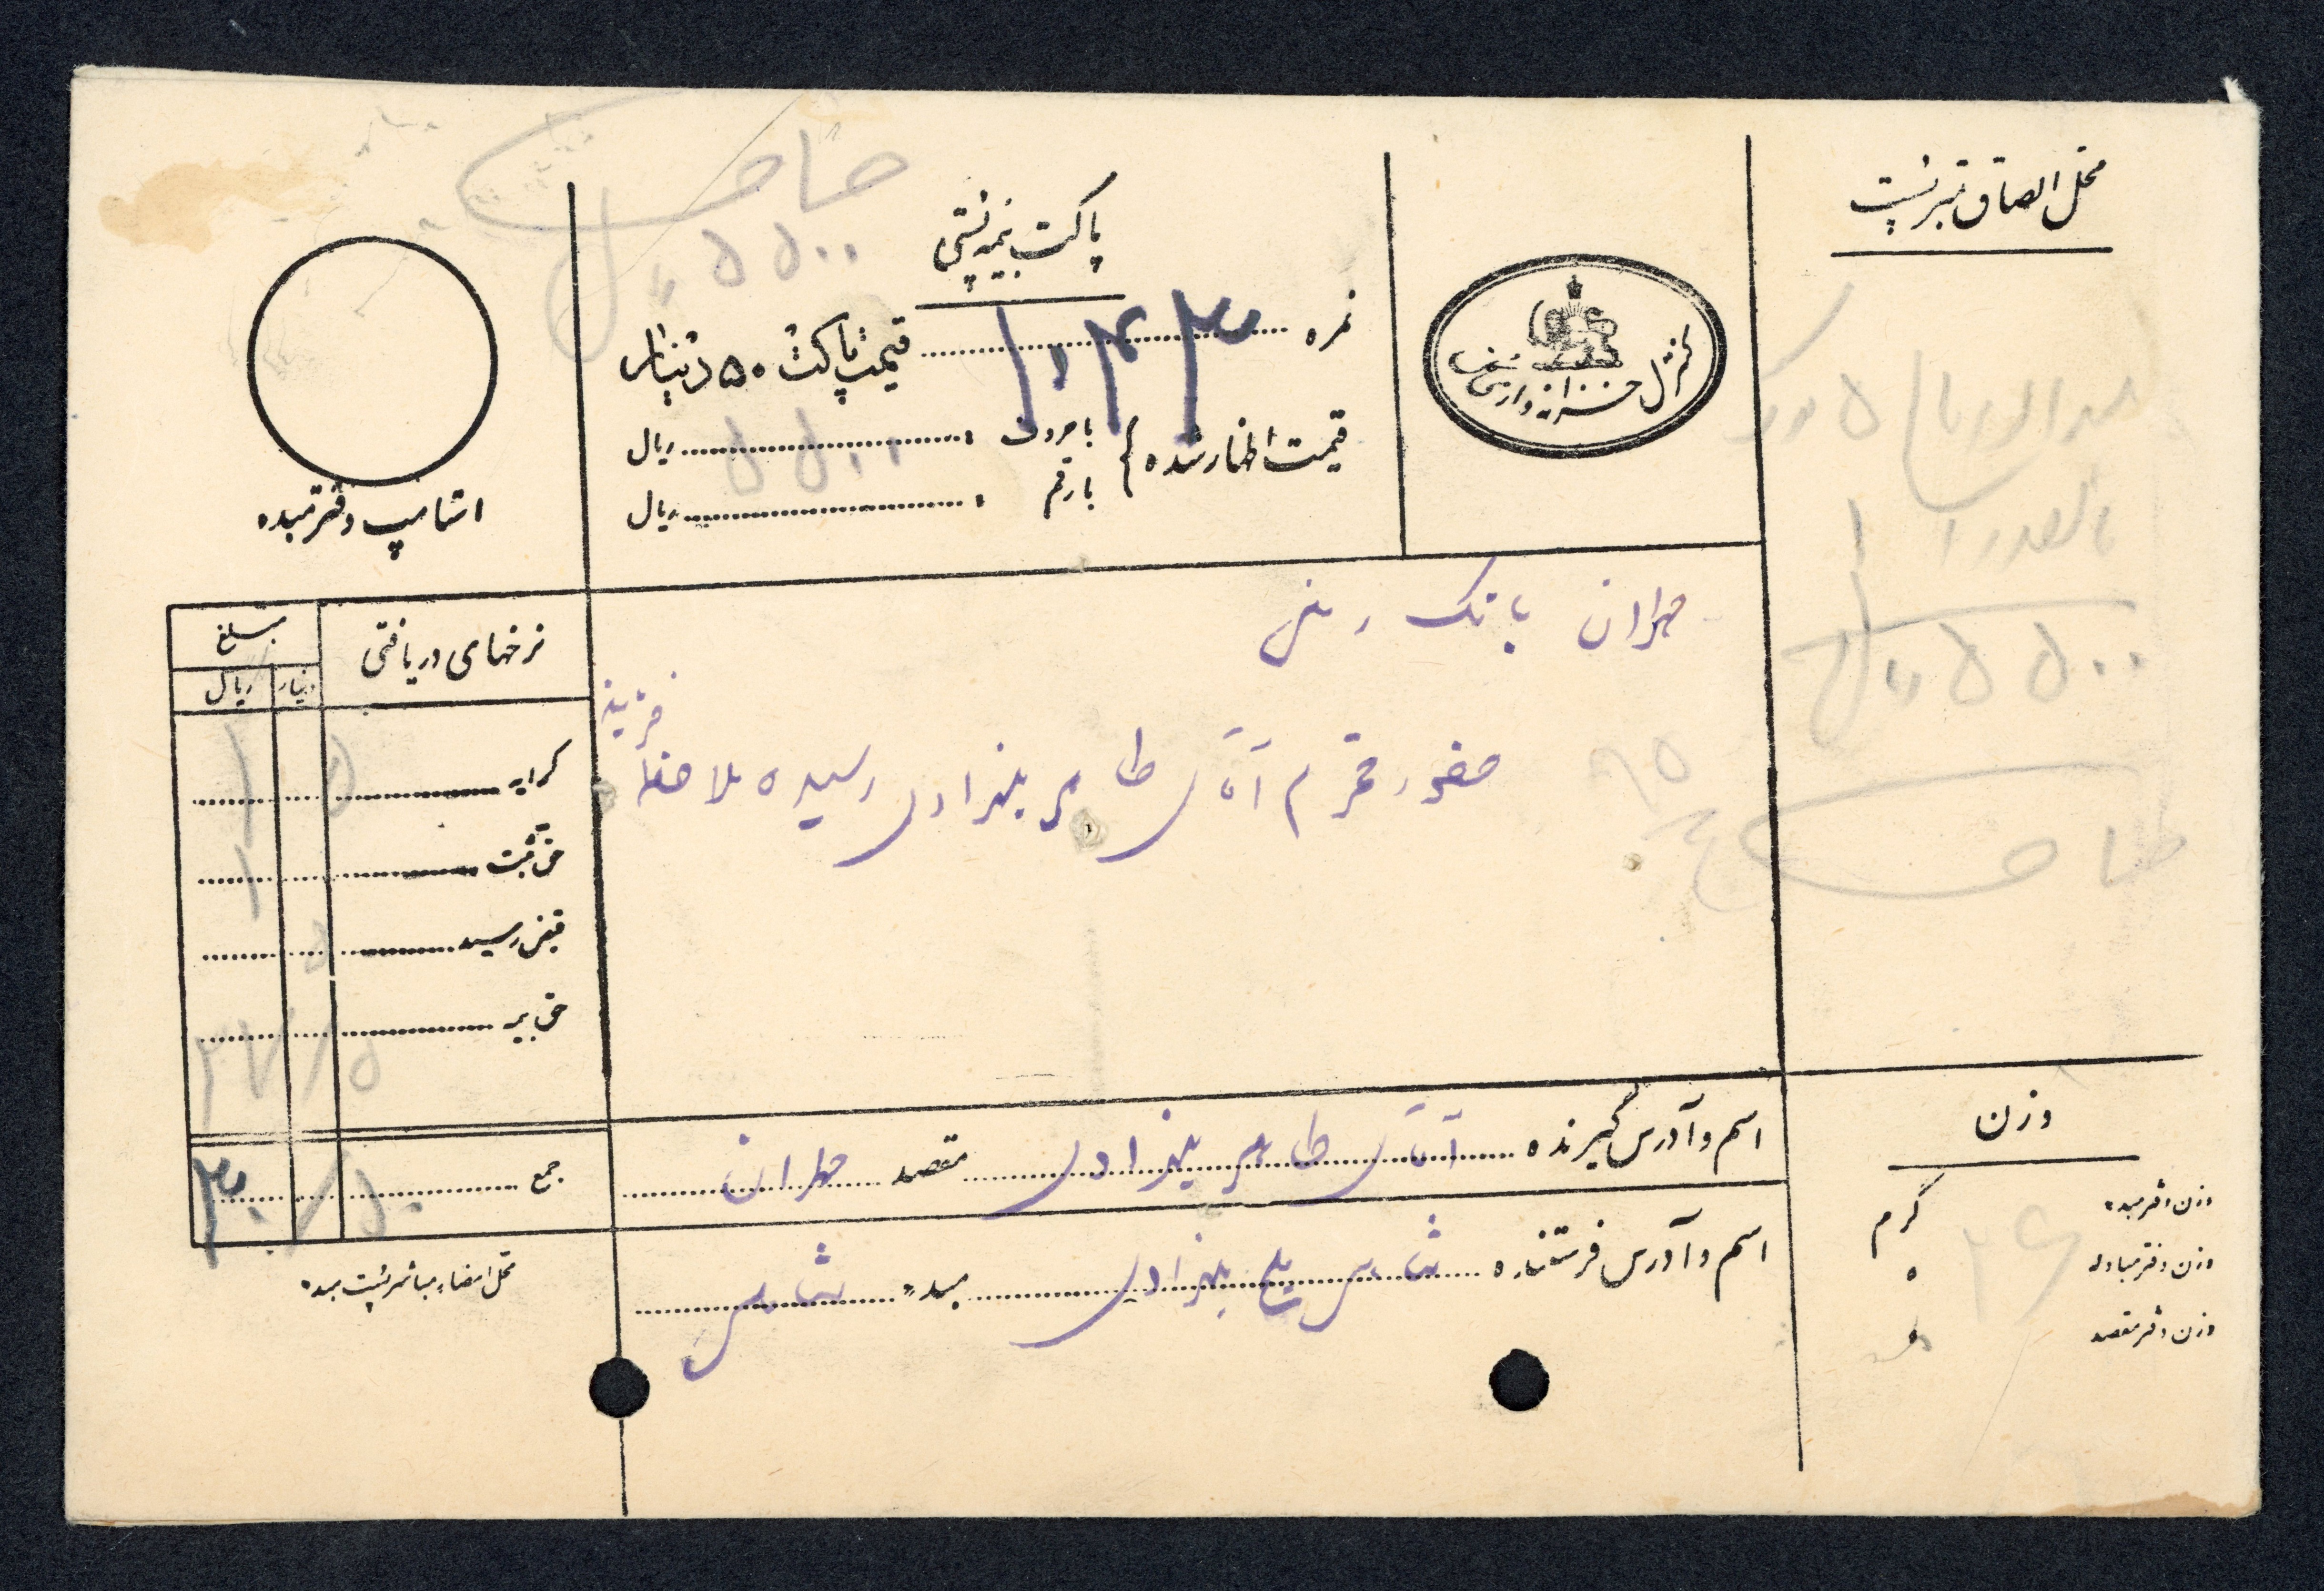 محل الصاق تمبر پست
پاکت بیمه پستی
نمره ۱۰۴۳
قیمت پاکت ۵۰ دینار
قیمت اظهار شده { با حروف : ۵۵۰۰ ریال
با رقم : ریال
کنترل خزانه داری
استامپ دفتر مبدء
۵۵۰۰ ریال
۵۵۰۰ ریال
طهران بانک رهنی
حضور محترم آقای طاهر بهزادی رسیده ملاحظه فرمایند
نرخهای دریافتی
مبلغ
دینار ریال
کرایه ۱ ۵
حق ثبت ۱
قبض رسید ۵
حق بیمه ۲۷/۵
جمع ۳۰/۵۰
محل امضاء مباشر پست مبدء
اسم و آدرس گیرنده آقای طاهر بهزادی مقصد طهران
اسم و آدرس فرستنده بهزادی مبدء
وزن
وزن دفتر مبدء
گرم
وزن دفتر مبادله
وزن دفتر مقصد